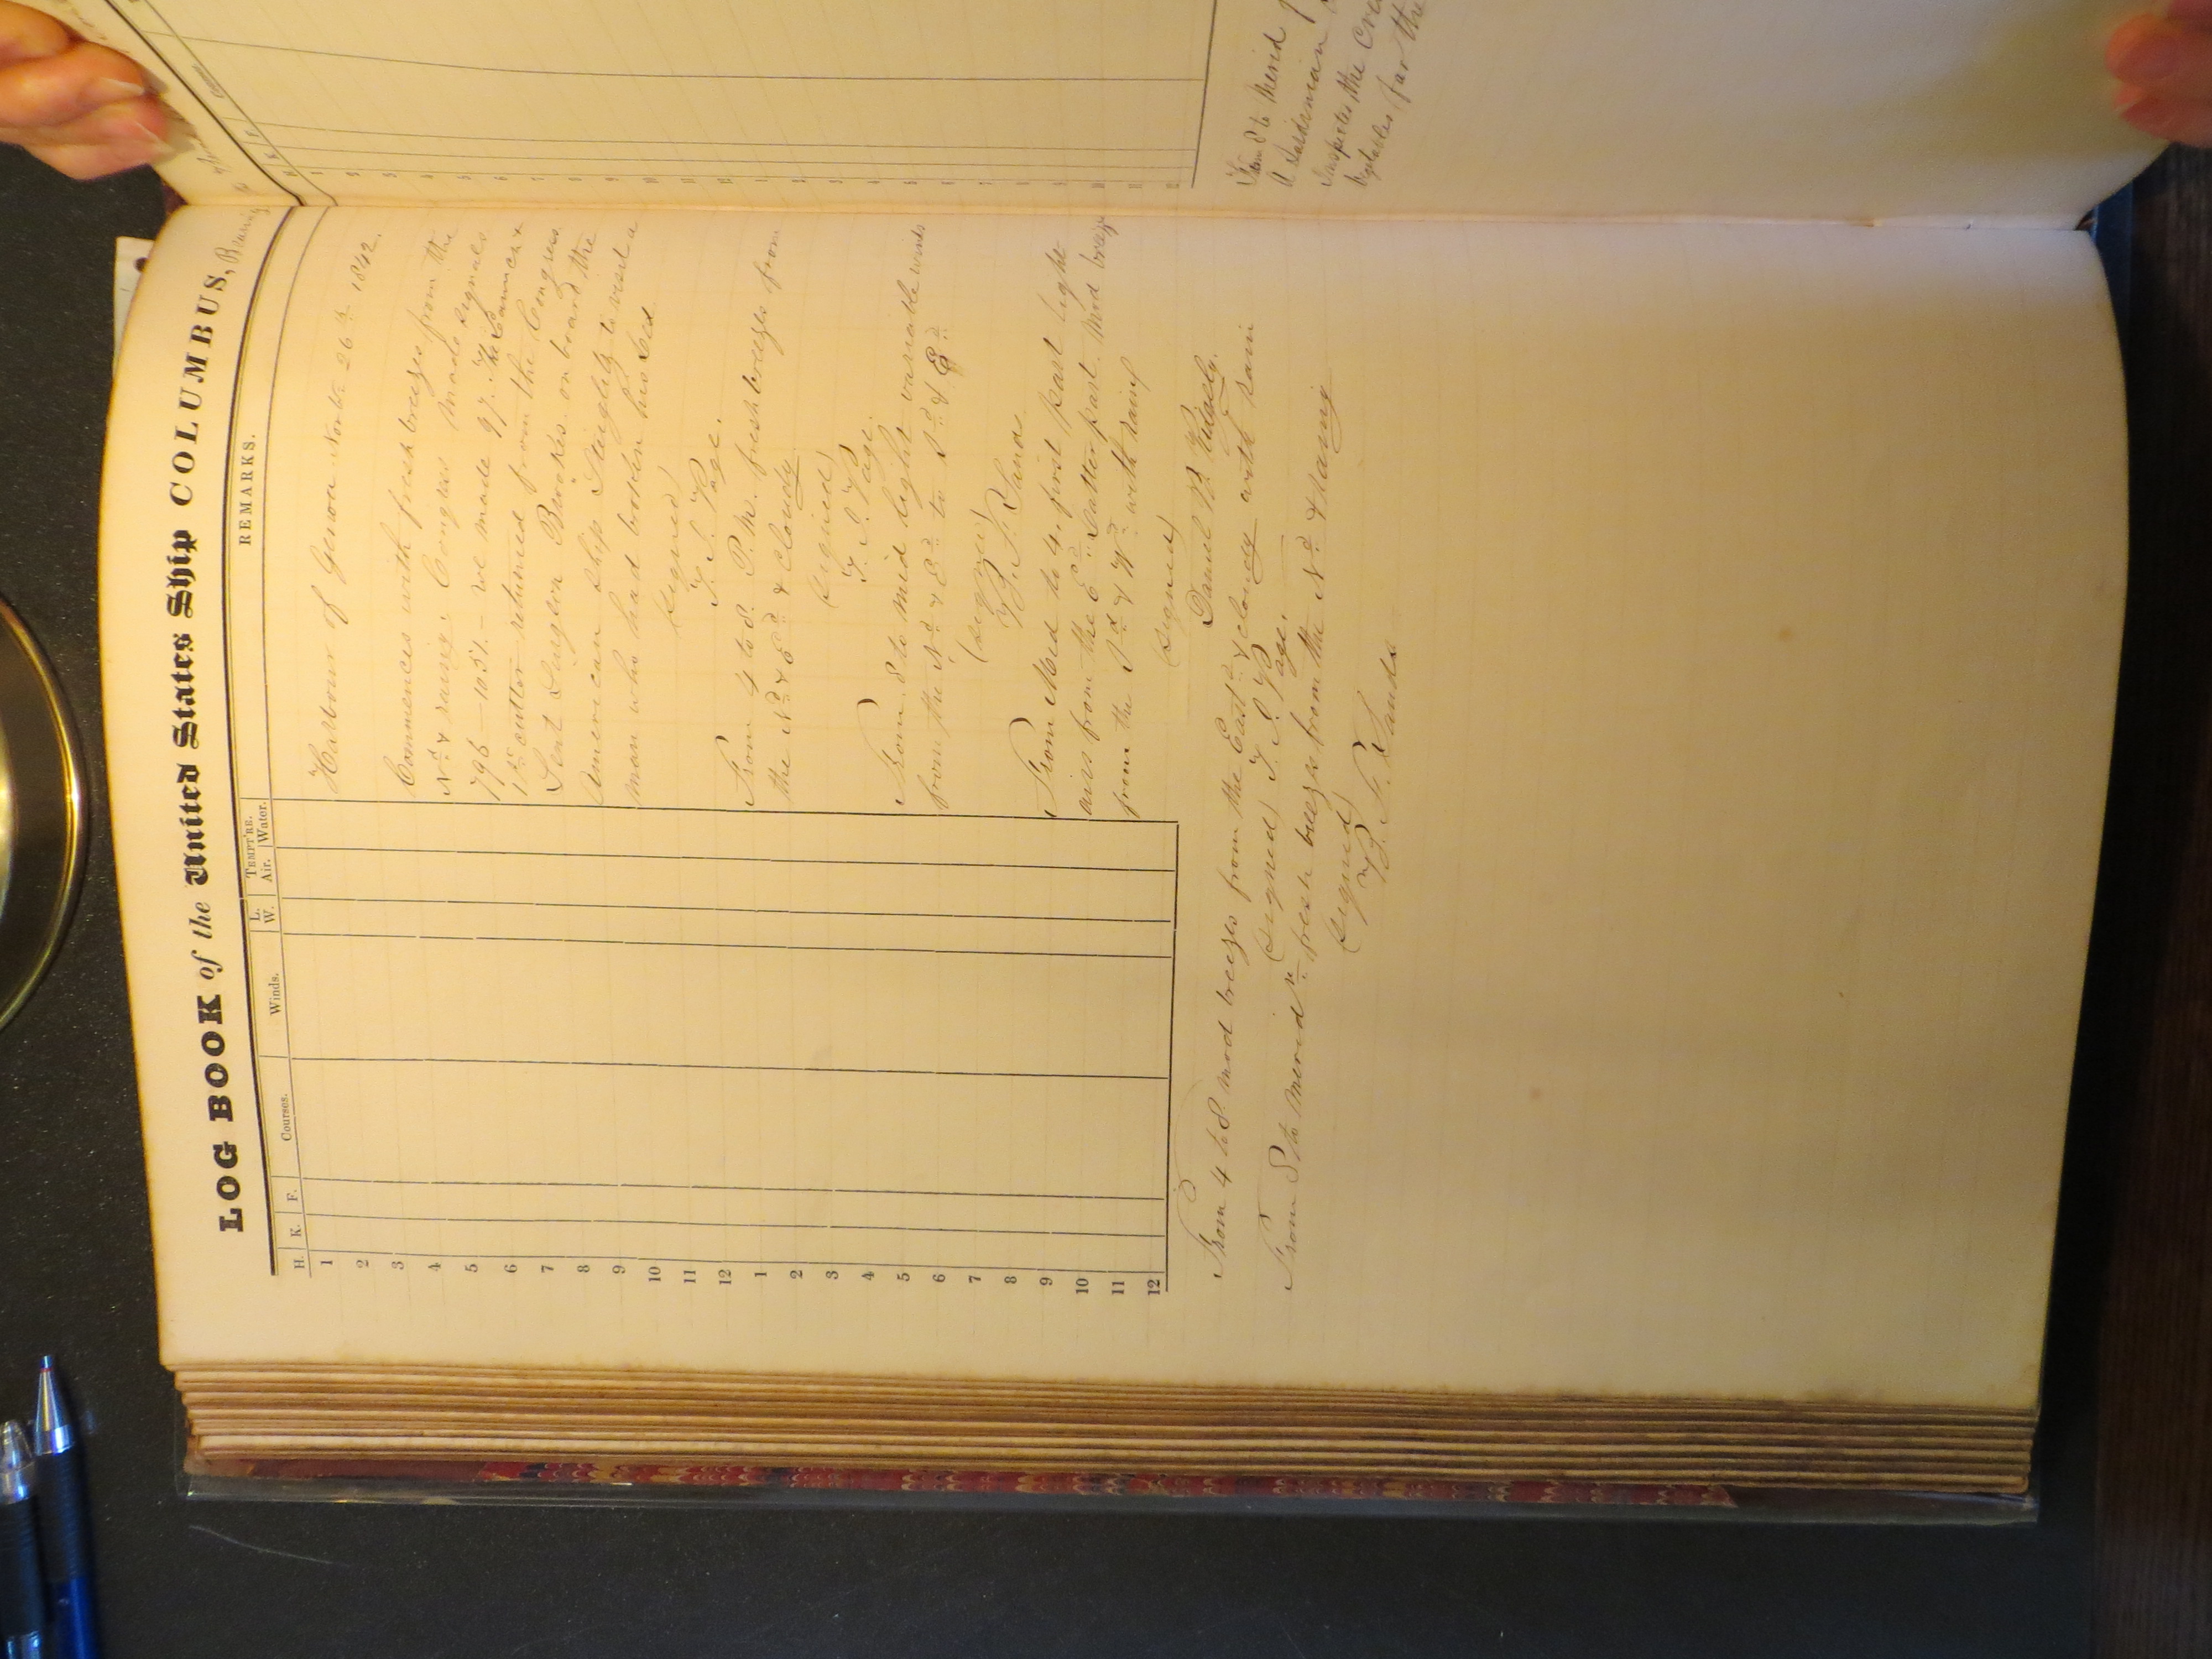 LOG BOOK of the United States Ship COLUMBUS,
H. K. F. Courses. Winds. L. W. TEMPT'RE. Air. Water. REMARKS.
1
2
3
4
5
6
7
8
9
10
11
12
1
2
3
4
5
6
7
8
9
10
11
12
Harbour of Genoa Novbr 26th 1842.
Commences with fresh breezes from the
Nd & rainy. Congress made signals
796 - 1051. - we made 97. The Launch &
1st cutter returned from the Congress.
Sent Surgeon Brookes on board the
American Ship to visit a
man who had broken his leg
(signed)
T. J. Page.
From 4 to 8. P.M. fresh breezes from
the Nd & Ed & cloudy
(signed)
T. J. Page.
From 8 to mid light variable winds
from the Nd & Ed to Sd & Ed
(signed)
B. F. Sands
From Mid to 4. first part light
airs from the Ed Latter part. Mod breezes
from the Nd & Wd with rain
(signed)
Daniel B. Ridgely.
From 4 to 8 mod breezes from the Eastd & cloudy with rain
(signed) T. J. Page.
From 8 to Meridn fresh breezes from the Nd & rainy
(signed)
B. F. Sands
From 8 to Merid
A Sardinian
Inspected the Crew
Vegetables for the